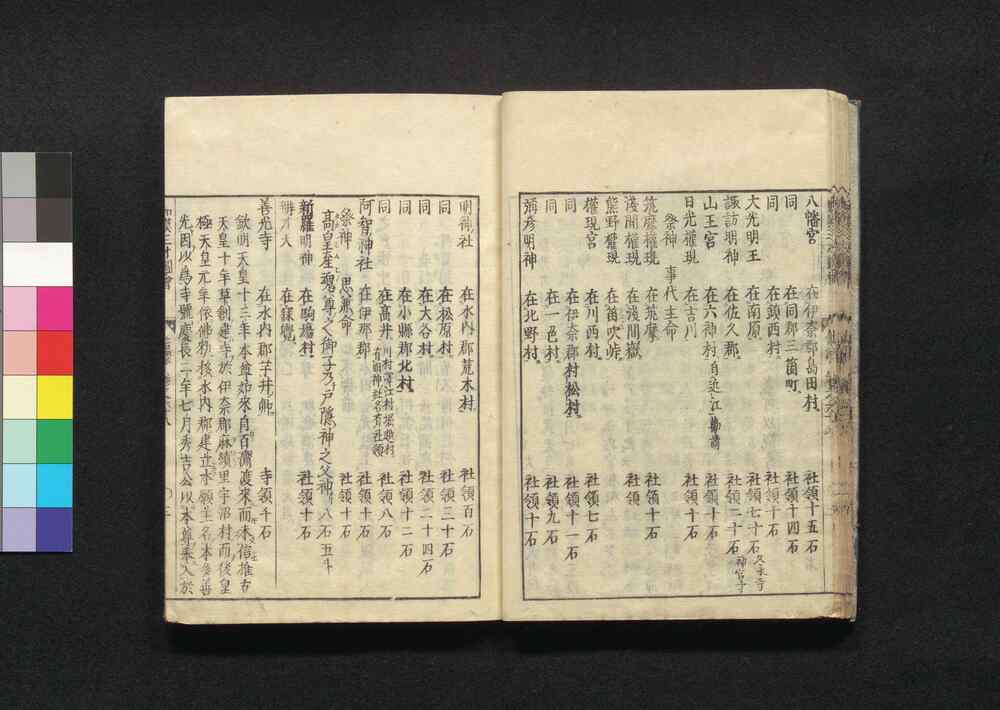 八幡宮 在伊奈郡島田村 社領十五石
同 在同郡三箇町 社領十四石
同 在鎮西村 社領十石
大光明王 在南原 社領七十石 久米寺
諏訪明神 在佐久郡 社領二十石 神宮寺
山王宮 在六神村 自近江勧請 社領十石
日光權現 在吉川 社領十石
祭神 事代主命
筑摩權現 在筑摩 社領十石
淺間權現 在淺間嶽 社領
熊野權現 在笛吹峠
權現宮 在川西村 社領七石
同 在伊奈郡村松村 社領十一石
同 在一色村 社領九石
彌彦明神 在北野村 社領十石
明神社 在水内郡荒木村 社領百石
同 在松原村 社領三十石
同 在大谷村 社領二十四石
同 在小縣郡北村 社領十二石
同 在高井 社領八石
阿智神社 在伊那郡 社領十石
祭神 思兼命 社領十石
高皇産魂尊之御子乃戸隱神之父神 八石五斗
新羅明神 在駒場村 社領十石
辨才天
善光寺 在水内郡芋井郷 寺領千石
欽明天皇十三年本尊如來自百濟渡來而未信推古
天皇十年草創建寺於伊奈郡麻績里宇沼村而後皇
極天皇元年依佛勅移水内郡建立水願主名本多善
光因以爲寺號慶長二年七月秀吉公以本尊乘入於